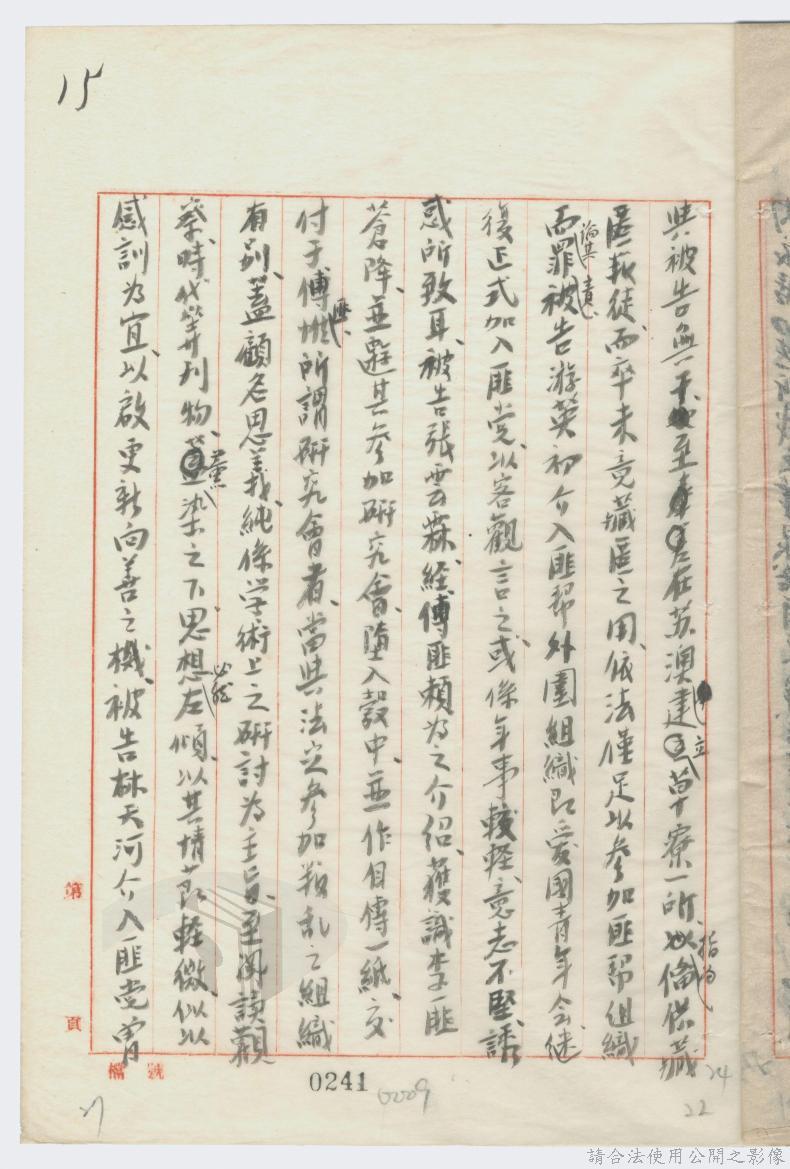 15
與被告無干、至在苏澳建立草寮一所、指為係供藏
匿叛徒、而卒未竟藏匿之用、依法僅足以參加匪帮組織
而論其罪責、被告游英初介入匪帮外圍組織即愛國青年会、继
復正式加入匪党、以客觀言之、或係年事較輕、意志不堅、誘
惑所致耳、被告張雲霖、經傅匪賴為之介紹、獲識李匪
蒼降、並邀其參加研究會、墮入彀中、並作自傳一紙、交
付于傅匪、所謂研究會者、當與法定參加叛乱之組織
有别、蓋顧名思義、純係学術上之研討為主旨、至閱讀觀
察、時代等刊物、薰染之下、思想必然左傾、以其情節輕微、似以
感訓為宜、以啟更新向善之機、被告林天河介入匪党、曾
第 頁
檔 號
0241
0009
24
22
27
請合法使用公開之影像